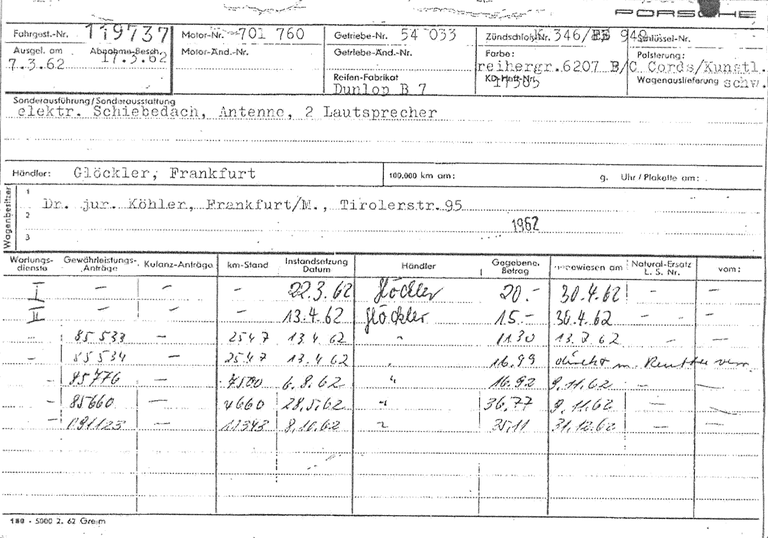 PORSCHE
Fahrgest.-Nr. 119737 Motor-Nr. 701 760 Getriebe-Nr. 54 033 Zündschloß-Nr. 346/ Schlüssel-Nr.
Ausgel. am Abnahme-Besch. Motor-Änd.-Nr. Getriebe-Änd.-Nr. Farbe: Polsterung:
7.3.62 17.3.62 reihergr.6207 B/C Cords/Kunstl.
Reifen-Fabrikat KD-Heft-Nr. Wagenauslieferung schw.
Dunlop B 7 17585
Sonderausführung/Sonderausstattung
elektr. Schiebedach, Antenne, 2 Lautsprecher
Händler: Glöckler, Frankfurt 100.000 km am: g. Uhr/Plakette am:
Wagenbesitzer
1
Dr. jur. Köhler, Frankfurt/M., Tirolerstr.95
2
1962
3
Wartungsdienste Gewährleistungs-Anträge Kulanz-Anträge km-Stand Instandsetzung Datum Händler Gegebene. Betrag am Natural-Ersatz L. S. Nr. vom:
I - - - 22.3.62 Glöckler 20.- 30.4.62 - -
II - - - 13.4.62 Glöckler 15.- 30.4.62 - -
- 85533 - 2547 13.4.62 " 11.30 62 - -
- 85534 - 2547 13.4.62 " 16.99 direkt m. Reutter verr.
- 85776 - 6.8.62 " 16.92 9.11.62 - -
- 85660 - 4660 28.5.62 " 36.77 9.11.62 - -
- - 8.10.62 " 35.11 31.12.62 - -
180 - 5000 2. 62 Greim